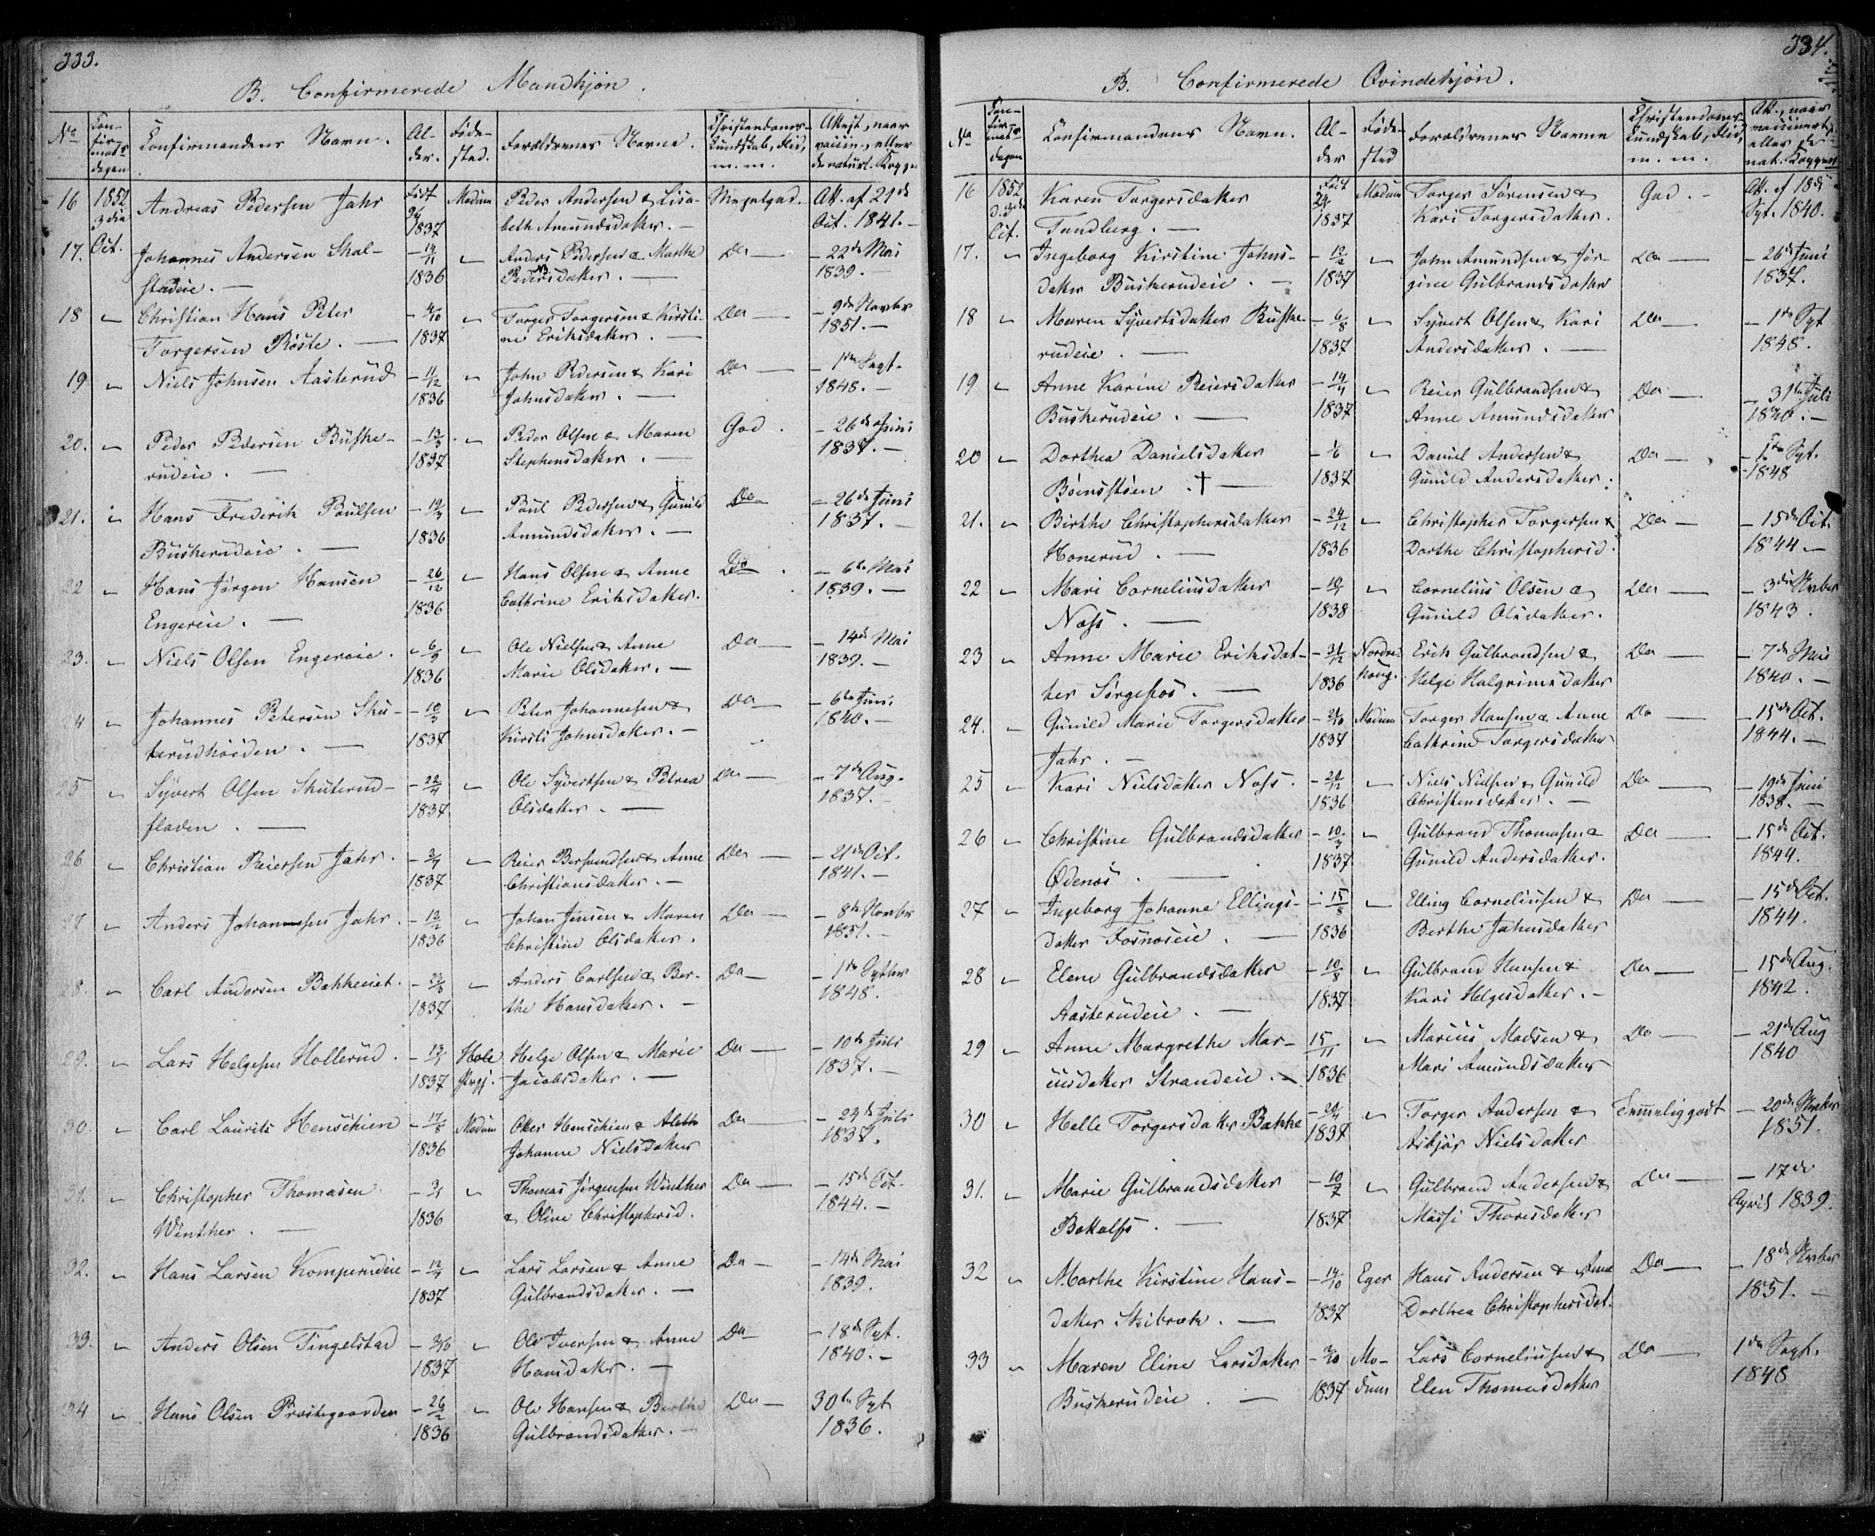 333.
B. Confirmerede Mandkjøn.
No Confirmationsdagen Confirmandens Navn. Alder. Fødested. Forældrenes Navne. Christendoms-Kundskab, Flid, m. m. Attest, naar vaccin., eller de naturl. Kopper
16 1852 3die Oct. Andreas Pedersen Jahr Født 1837 Modum Peder Andersen & Lisabeth Amundsdatter. — Megetgod. Att. af 21de Oct. 1841. —
17. " Johannes Andersen Skalstadeie. — 19/11 1836 " Anders Pedersen & Marthe Pedersdatter. — Do — — 22de Mai 1839. —
18 " Christian Hans Peter Torgersen Røste. — 1837 " Torger Torgersen & Kirstine Eriksdatter. — Do — — 9de Novbr 1851. —
19 " Niels Johnsen Aasterud — 11/12 1836 " John Pedersen & Kari Johnsdatter. — Do — — 1ste Sept. 1848. —
20. " Peder Pedersen Buskerudeie. — 13/3 1837 " Peder Olsen & Maren Stephensdatter. — God. — 26de Juni 1837. —
21. " Hans Frederik Poulsen Buskerudeie. — 1836 " Poul Pedersen & Gunild Amundsdatter. — Do — 26de Juni 1837. —
22 " Hans Jørgen Hansen Engereie. — 26/12 1836 " Hans Olsen & Anne Cathrine Eriksdatter. Do. — 6te Mai 1839. —
23. " Niels Olsen Engereie. — 6/9 1836 " Ole Nielsen & Anne Marie Olsdatter. — Do — — 14de Mai 1839. —
24 " Johannes Petersen Skuterudhøiden. — 10/3 1837 " Peter Johannesen & Kirsti Johnsdatter. — Do — — 6te Juni 1840. —
25 " Syvert Olsen Skuterudfladen. — 22/4 1837 " Ole Syvertsen & Petrea Olsdatter. — Do — — 7de Aug. 1837. —
26 " Christian Reiersen Jahr. — 1837 " Reier Bersvendsen & Anne Christiansdatter. — Do — — 21de Oct. 1841. —
27 " Anders Johannesen Jahr. — 12/2 1836 " Johan Jensen & Maren Christine Olsdatter. Do — — 8de Novbr 1851. —
28. " Carl Andersen Bakkeeiet. — 1837 " Anders Carlsen & Berthe Hansdatter. — Do — — 1ste Septbr 1848. —
29. " Lars Helgesen Hollerud. — 1837 Hole Prgj. Helge Olsen & Marie Jacobsdatter. — Do — — 10de Juli 1837. —
30 " Carl Laurits Henschien — 17/8 1836 Modum Otter Henschien & Aleth Johanne Nielsdatter Do — — 24de Juli 1837.
31. " Christopher Thomasen Winther. — 1836 " Thomas Jørgensen Winther & Oline Christophersd. Do — — 15de Oct. 1844. —
32. " Hans Larsen Komperudeie — 12/4 1837 " Lars Larsen & Anne Gulbrandsdatter. — Do — — 14de Mai 1839.
33. " Anders Olsen Tingelstad — 1837 " Ole Iversen & Anne Hansdatter. — Do — — 18de Sept. 1840. —
34 " Hans Olsen Prestegaarden — 26/2 1836 " Ole Hansen & Berthe Gulbrandsdatter. — Do — 30te Sept 1836.
334.
B. Confirmerede Qvindekjøn.
No Confirmationsdagen Confirmandens Navn. Alder Fødested Forældrenes Navne Christendoms-Kundskab, Flid, m. m. Att., naar vaccineret, eller de nat. Kopper
16 1852 d. 3de Oct. Karen Torgersdatter Tandberg. — Født 1837 Modum Torger Sørensen & Kari Torgersdatter. God. — Att. af 18de Sept. 1840.
17. " Ingeborg Kirstine Johnsdatter Buskerudeie. — 12/2 1837 " John Amundsen & Jørgine Gulbrandsdatter Do — — 26de Juni 1837.
18 " Maren Syvertsdatter Buskerudeie. — 6/8 1837 " Syvert Olsen & Kari Andersdatter. — Do — — 1ste Sept 1848.
19 " Anne Karine Reiersdatter Buskerudeie. — 14/4 1837 " Reier Gulbrandsen & Anne Amundsdatter Do — — 31te Juli 1840. —
20 " Dorthea Danielsdatter Bøenstøen. † — 1/6 1837 " Daniel Andersen & Gunild Andersdatter. Do — — 1ste Sept. 1848
21. " Birthe Christophersdatter Honerud. — 24/12 1836 " Christopher Torgersen & Dorthe Christophersd. Do — — 15de Oct. 1844 —
22 " Mari Corneliusdatter Næss. — 1838 " Cornelius Olsen & Gunild Olsdatter. Do — — 3die Novbr 1843.
23 " Anne Marie Eriksdatter Sørgefos. — 31/12 1836 Nordrehoug. Erik Gulbrandsen & Helge Halgrimsdatter Do — — 7de Mai 1840. —
24. " Gunild Marie Torgersdatter Jahr. — 1837 Modum Torger Hansen & Anne Cathrine Torgersdatter Do — — 15de Oct. 1844. —
25 " Kari Nielsdatter Næss. — 21/12 1836 " Niels Nielsen & Gunild Christensdatter. — Do — — 19de Juni 1838. —
26 " Christine Gulbrandsdatter Ødenæs. — 10/3 1837 " Gulbrand Thomasen & Gunild Andersdatter. Do — — 15de Oct. 1844.
27 " Ingeborg Johanne Ellingsdatter Fosnæseie. — 15/8 1836 " Elling Corneliusen & Berthe Johnsdatter Do — — 15de Oct. 1844.
28 " Elene Gulbrandsdatter Aasterudeie. — 10/8 1837 " Gulbrand Hansen & Kari Helgesdatter. — Do — — 15de Aug. 1842.
29 " Anne Margrethe Mariusdatter Strandeie. — 15/11 1836 " Marius Madsen & Mari Amundsdatter Do — — 21de Aug 1840
30 " Helle Torgersdatter Bakke 1837 " Torger Andersen & Asbjør Nielsdatter Temmelig godt — 20de Novbr 1851.
31. " Marie Gulbrandsdatter Bottolfs. — 10/7 1837 " Gulbrand Andersen & Massi Thoresdatter Do — — 17de April 1839.
32 " Marthe Kirstine Hansdatter Skibræk. — 14/10 1837 Eger Hans Andersen & Anne Dorthea Christophersdat. Do — — 18de Novbr 1851. —
33 " Maren Eline Larsdatter Buskerudeie. — 1837 Modum Lars Corneliusen & Elen Thomasdatter Do — 1ste Sept. 1848